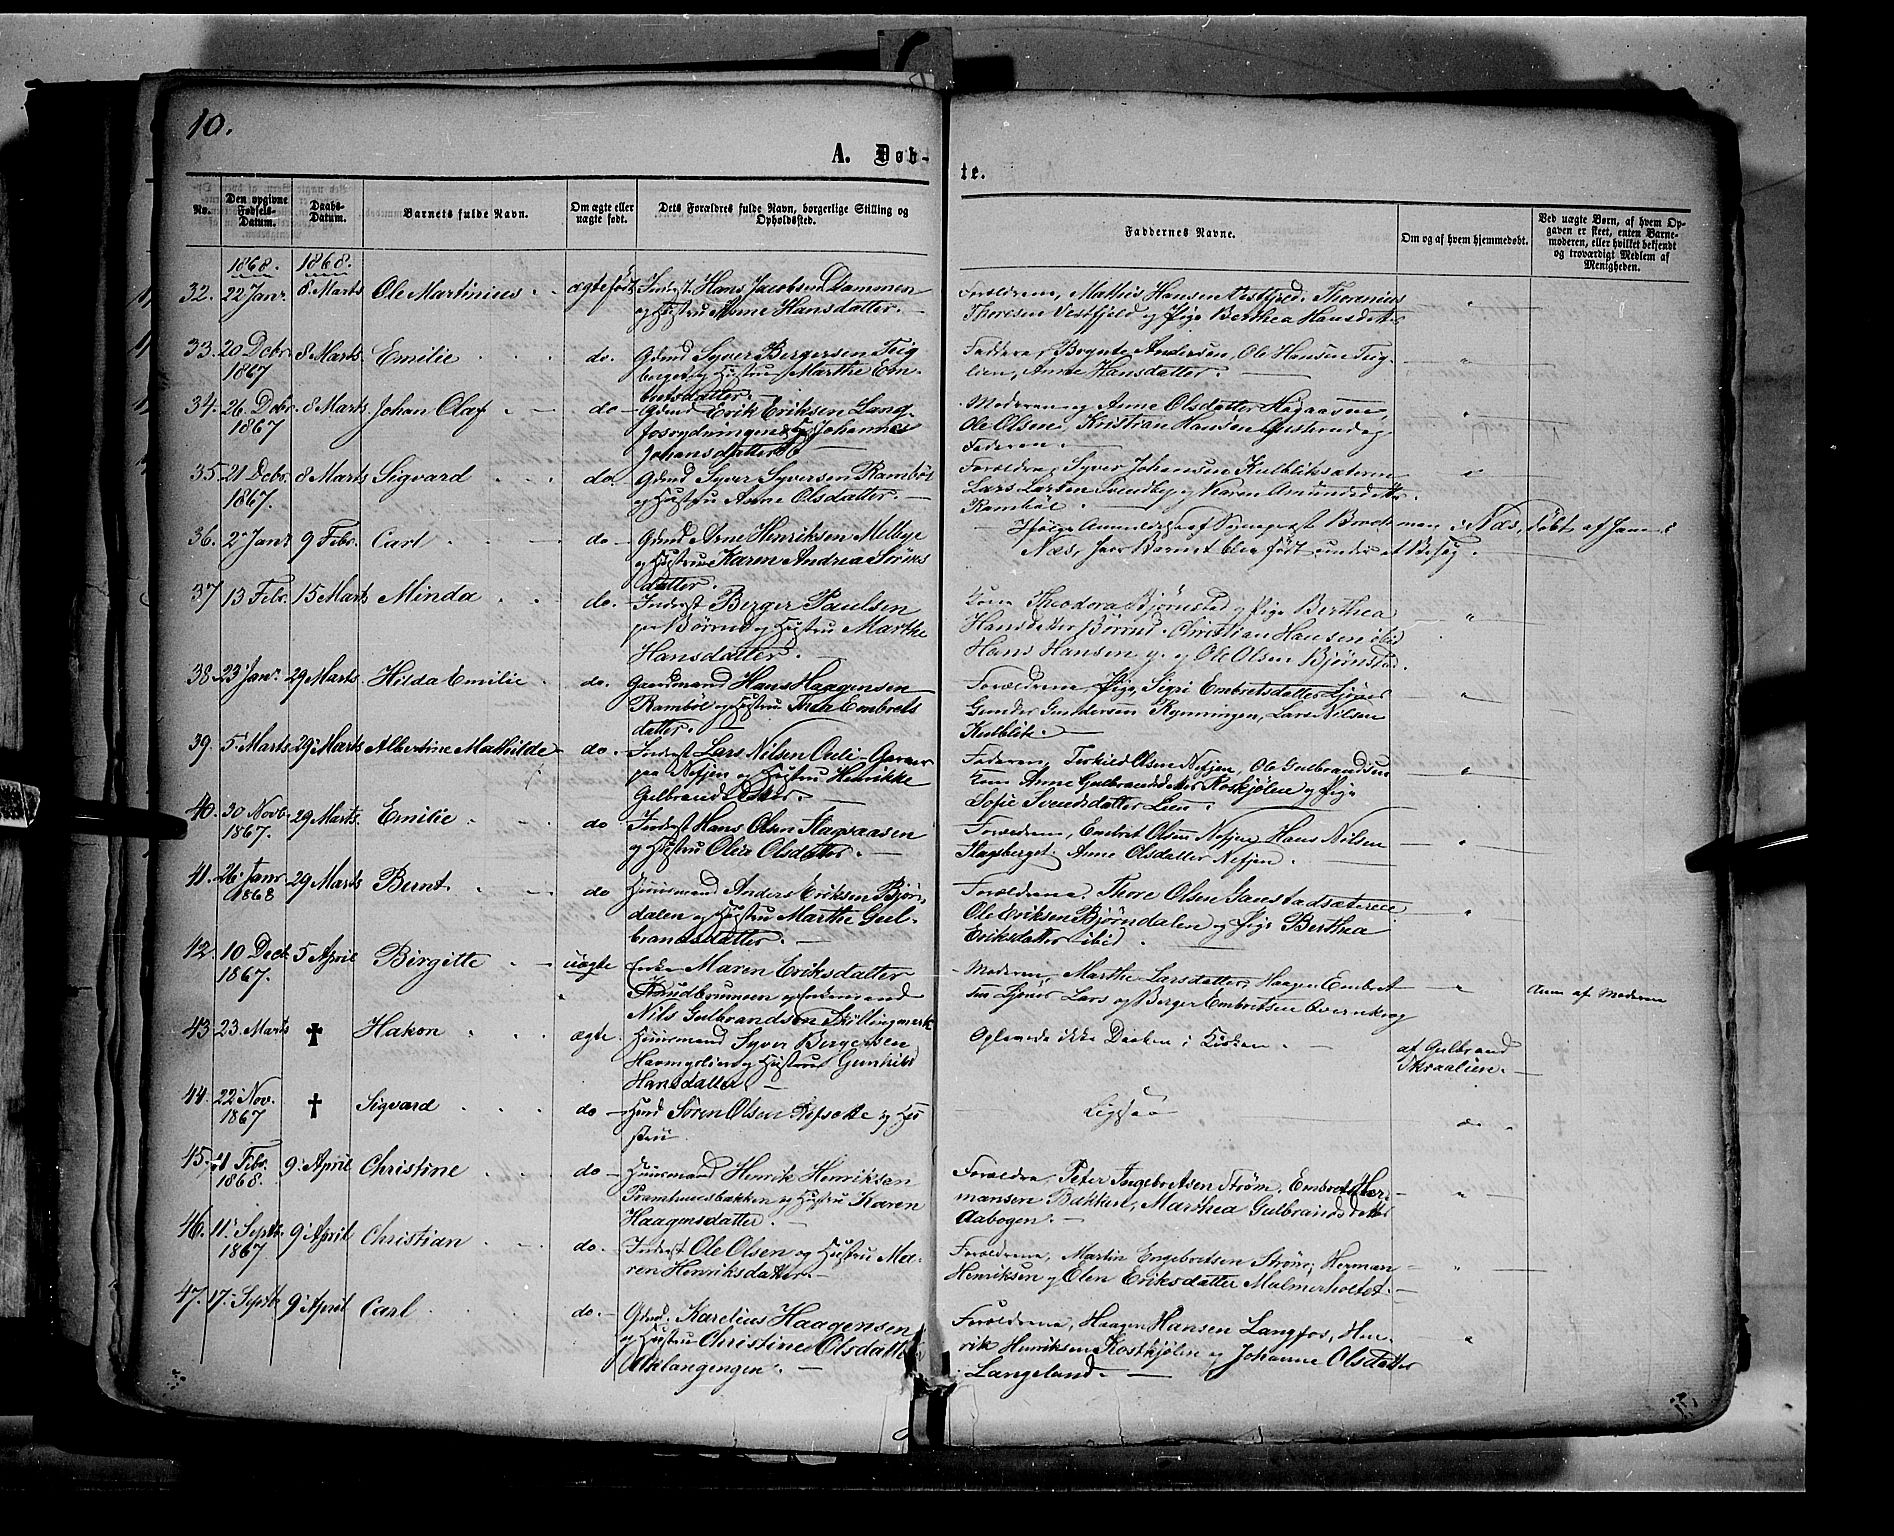 10.
A. Døb-
te.
No.
Den opgivne
Fødsels-
Datum.
Daabs-
Datum.
Barnets fulde Navn.
Om ægte eller
uægte født.
Dets Forældres fulde Navn, borgerlige Stilling og
Opholdssted.
Faddernes Navne.
Om og af hvem hjemmedøbt.
Ved uægte Børn, af hvem Op-
gaven er skeet, enten Barne-
moderen, eller hvilket bekjendt
og troværdigt Medlem af
Menigheden.
1868. 1868.
32. 22 Janr. 8 Marts Ole Martinius ægtefødt Inderst Hans Jacobsen Dammen
og Hustru Anne Hansdatter.
Forældrene, Mathis Hansen
Thoresen Vestfjeld og Pige Berthea Hansdatter
33. 20 Decbr. 8 Marts Emilie do. Gbmd Syver Bergersen Teig
1867 berget og Hustru Marthe Em-
bretsdatter.
Faderen, Andersen, Ole Hansen Teig-
lien, Anne Hansdatter.
34. 26 Decbr. 8 Marts Johan Olaf do Gbmd Erik Eriksen Lang-
1867 fosrydningen og H. Johanne
Johansdatter
Moderen og Anne Olsdatter Hagaasen,
Ole Olsen, Kristian Hansen og
Faderen.
35 21 Decbr. 8 Marts Sigvard do Gbmd Syver Syversen Rambøl
1867. og Hustru Anne Olsdatter.
Forældre, Syver Johansen Kulbliksæteren
Lars Larsen Svendby og Karen Amundsdatter
Rambøl.
36. 2 Janr 9 Febr. Carl do Gbmd Arne Henriksen Melbye
og Hustru Karen Andrea Sørens
datter.
Ifølge Anmeldelse af Sognepræst Bockman i Næs, døbt af ham i
Næs, hvor Barnet blev født under et Besøg.
37 13 Febr. 15 Marts Minda do. Inderst Berger Paulsen
paa Børrud og Hustru Marthe
Hansdatter.
Kone Theodora Bjørnstad og Pige Berthea
Hansdatter Børrud. Christian Hansen ibid
Hans Hansen og Ole Olsen Bjørnstad.
38 23 Janr. 29 Marts Hilda Emilie do. Gaardmand Hans Haagensen
Rambøl og Hustru Thea Embrets
datter.
Forældrene, Pige Sigri Embretsdatter
Gunder Gundersen Rynningen, Lars Nilsen
Kulblik.
39 5 Marts 29 Marts Albertine Mathilde do. Inderst Lars Nilsen
paa Nefjen og Hustru Henrikke
Gulbrandsdatter.
Faderen, Terkild Olsen Nefjen, Ole Gulbrandsen
Kone Anne Gulbrandsdatter Roskjølen og Pige
Sofie Svendsdatter Lien.
40. 30 Novb. 29 Marts Emilie do Inderst Hans Olsen Flagsaasen
1867. og Hustru Olea Olsdatter.
Forældrene, Embret Olsen Nefjen, Hans Nilsen
Flagsberget, Anne Olsdatter Nefjen.
41. 26 Janr 29 Marts Bernt do Huusmand Anders Eriksen Bjørn
1868 dalen og Hustru Marthe Gul-
brandsdatter.
Forældrene, Thore Olsen
Ole Eriksen Bjørndalen og Pige Berthea
Eriksdatter ibid.
42. 10 Decb. 5 April Birgitte uægte Maren Eriksdatter
1867. og
Nils Gulbrandsen
Moderen, Marthe Larsdatter, Haagen Embret
sen Lars og Berger Embretsen
Anm. af Moderen
43 23. Marts † Hakon ægte Huusmand Syver Bergersen
og Hustru Gunhild
Hansdatter
Oplæstes ikke Daaben i Kirken. af Gulbrand
Skraalien.
44. 22 Nov. † Sigvard do Hmd Søren Olsen Refsætte og Hu
1867 stru
Ligesaa do
45. 11 Febr. 9 April Christine do Huusmand Henrik Henriksen
1868. og Hustru Karen
Haagensdatter.
Forældre, Peter Ingebretsen Strøm, Embret Her-
mansen Bakken, Marthea Gulbrandsdatter
Aabogen.
46. 11 Septbr. 9 April Christian do. Inderst Ole Olsen og Hustru Ma-
1867 ren Henriksdatter.
Forældrene, Martin Engebretsen Strøm, Herman
Henriksen og Elen Eriksdatter Malmerholtet.
47. 17 Septbr. 9 April Carl do. Gbmd. Karelius Haagensen
og Hustru Christine Olsdatter
Aaklangengen.
Forældrene, Haagen Hansen Langfos, Hen-
rik Henriksen Roskjølen og Johanne Olsdatter
Langeland.